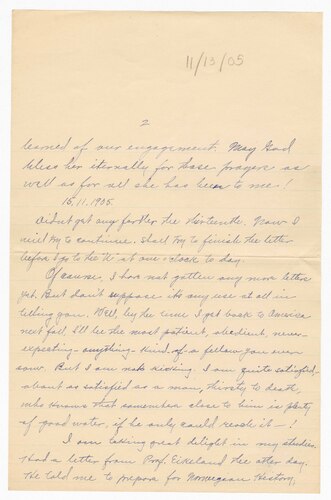 11/13/05
2
learned of our engagement. May God
bless her eternally for those prayers as
well as for all she has been to me!
15.11.1905.
Didn't get any farther the thirteenth. Now I
will try to continue. Shall try to finish the letter
before I go to the at one o'clock to day.
Of course, I have not gotten any more letter
yet. But don't suppose its any use at all in
telling you. Well, by the time I get back to America
next fall, I'll be the most patient, obedient, never-
expecting-anything-kind-of a fellow you ever
saw. But I am not kicking. I am quite satisfied,
about as satisfied as a man, thirsty to death,
who knows that somewhere close to him is plenty
of good water, if he only could reach it-!
I am taking great delight in my studies.
Had a letter from Prof. Eikeland the other day.
He told me to prepare for Norwegian History,